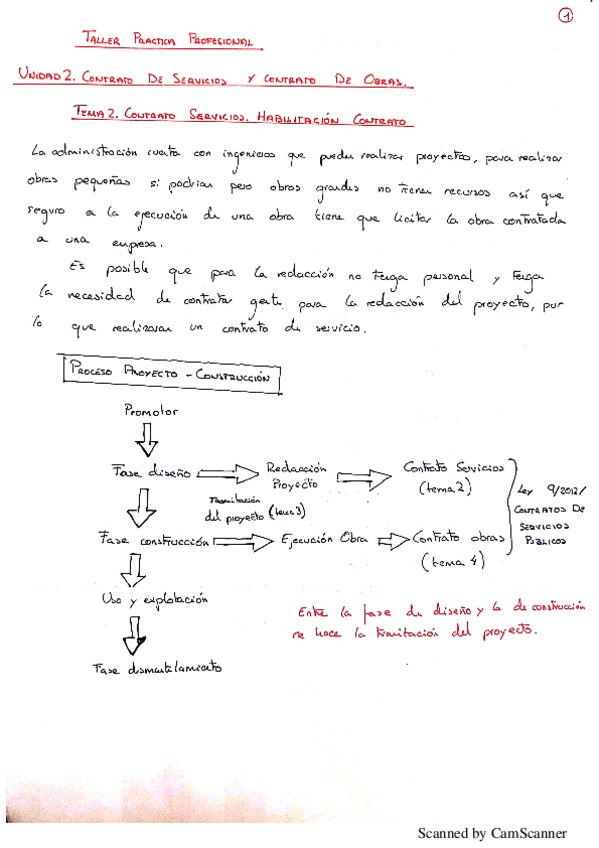 1
TALLER PRACTICA PROFESIONAL
UNIDAD 2. CONTRATO DE SERVICIOS Y CONTRATO DE OBRAS.
TEMA 2. CONTRATO SERVICIOS. HABILITACIÓN CONTRATO
La administración cuenta con ingenieros que pueden realizar proyectos, para realizar
obras pequeñas si podrian pero obras grandes no tienen recursos así que
seguro a la ejecución de una obra tiene que licitar la obra contratada
a una empresa.
Es posible que para la redacción no tenga personal y tenga
la necesidad de contratar gente para la redacción del proyecto, por
lo que realizaran un contrato de servicio.
PROCESO PROYECTO - CONSTRUCCIÓN
Promotor
Fase diseño Redacción Proyecto Contrato Servicios (tema 2)
Tramitación del proyecto (tema 3)
Fase construcción Ejecución Obra Contrato obras (tema 4)
Ley 9/2017/
CONTRATOS DE
SERVICIOS
PUBLICOS
Uso y explotación
Fase desmantelamiento
Entre la fase de diseño y la de construcción
se hace la tramitación del proyecto.
Scanned by CamScanner